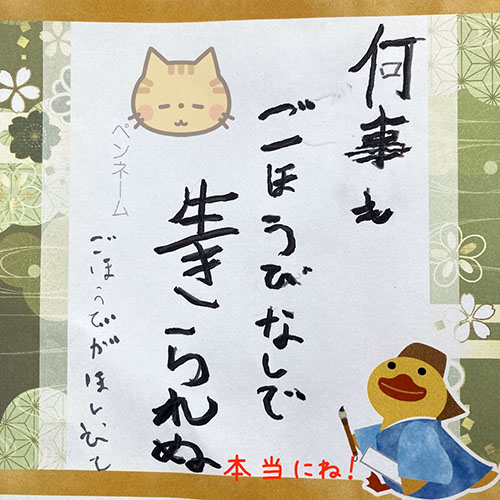 何事も
ごほうびなしで
生きこられぬ
ペンネーム
ごほうびがほしひと
本当にね!